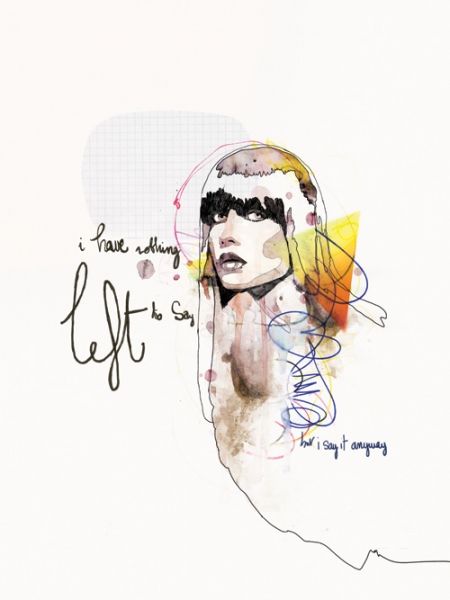 i have nothing
left to say
but i say it anyway